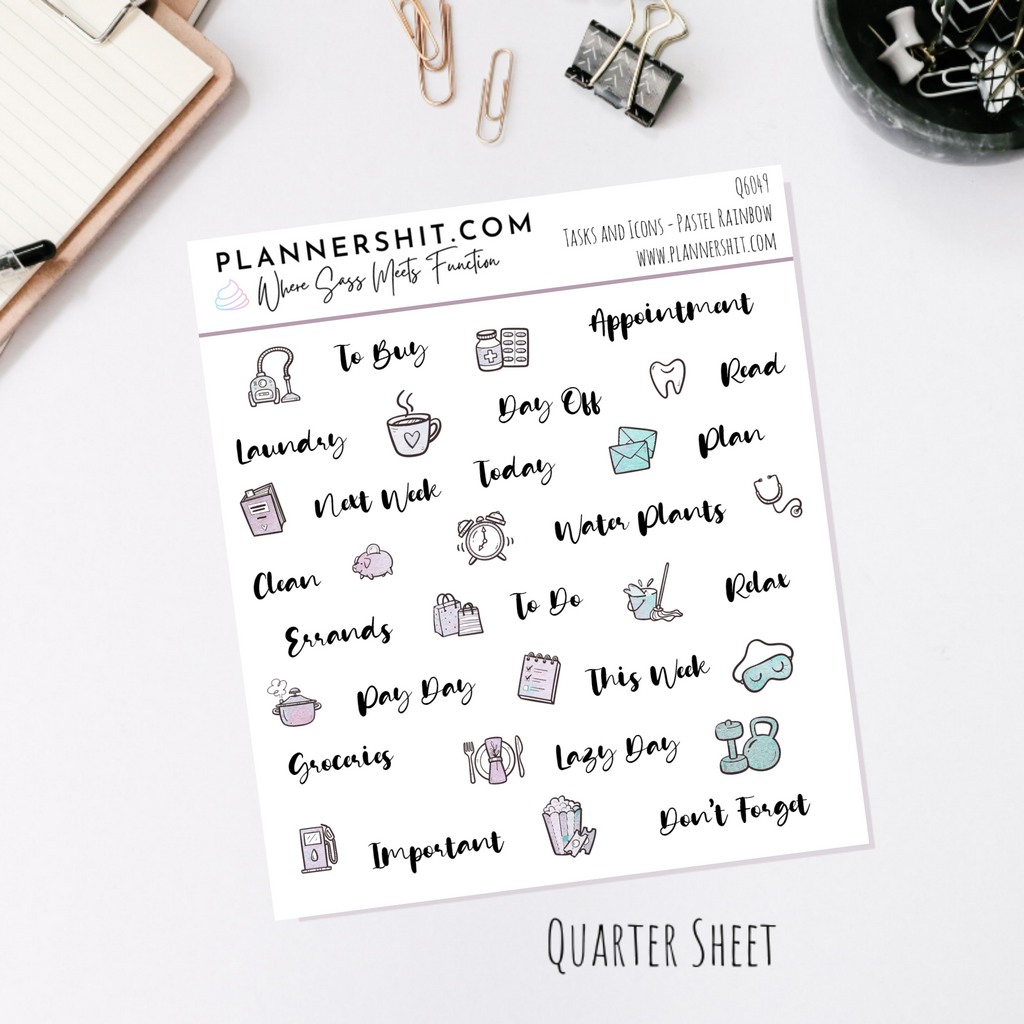 PLANNERSHIT.COM
Where Sass Meets Function
Q6049
Tasks and Icons - Pastel Rainbow
www.plannershit.com
To Buy
Appointment
Laundry
Day Off
Read
Next Week
Today
Plan
Clean
Water Plants
Errands
To Do
Relax
Pay Day
This Week
Groceries
Lazy Day
Important
Don't Forget
Quarter Sheet